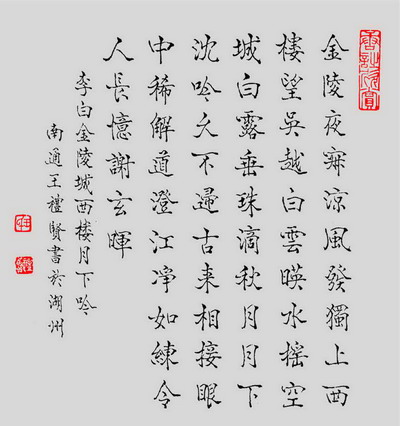 金陵夜寂涼風發獨上西
楼望吳越白雲暎水摇空
城白露垂珠滴秋月月下
沈吟久不歸古来相接眼
中稀解道澄江淨如練令
人長憶謝玄暉
李白金陵城西楼月下吟
南通王禮賢書於湖州